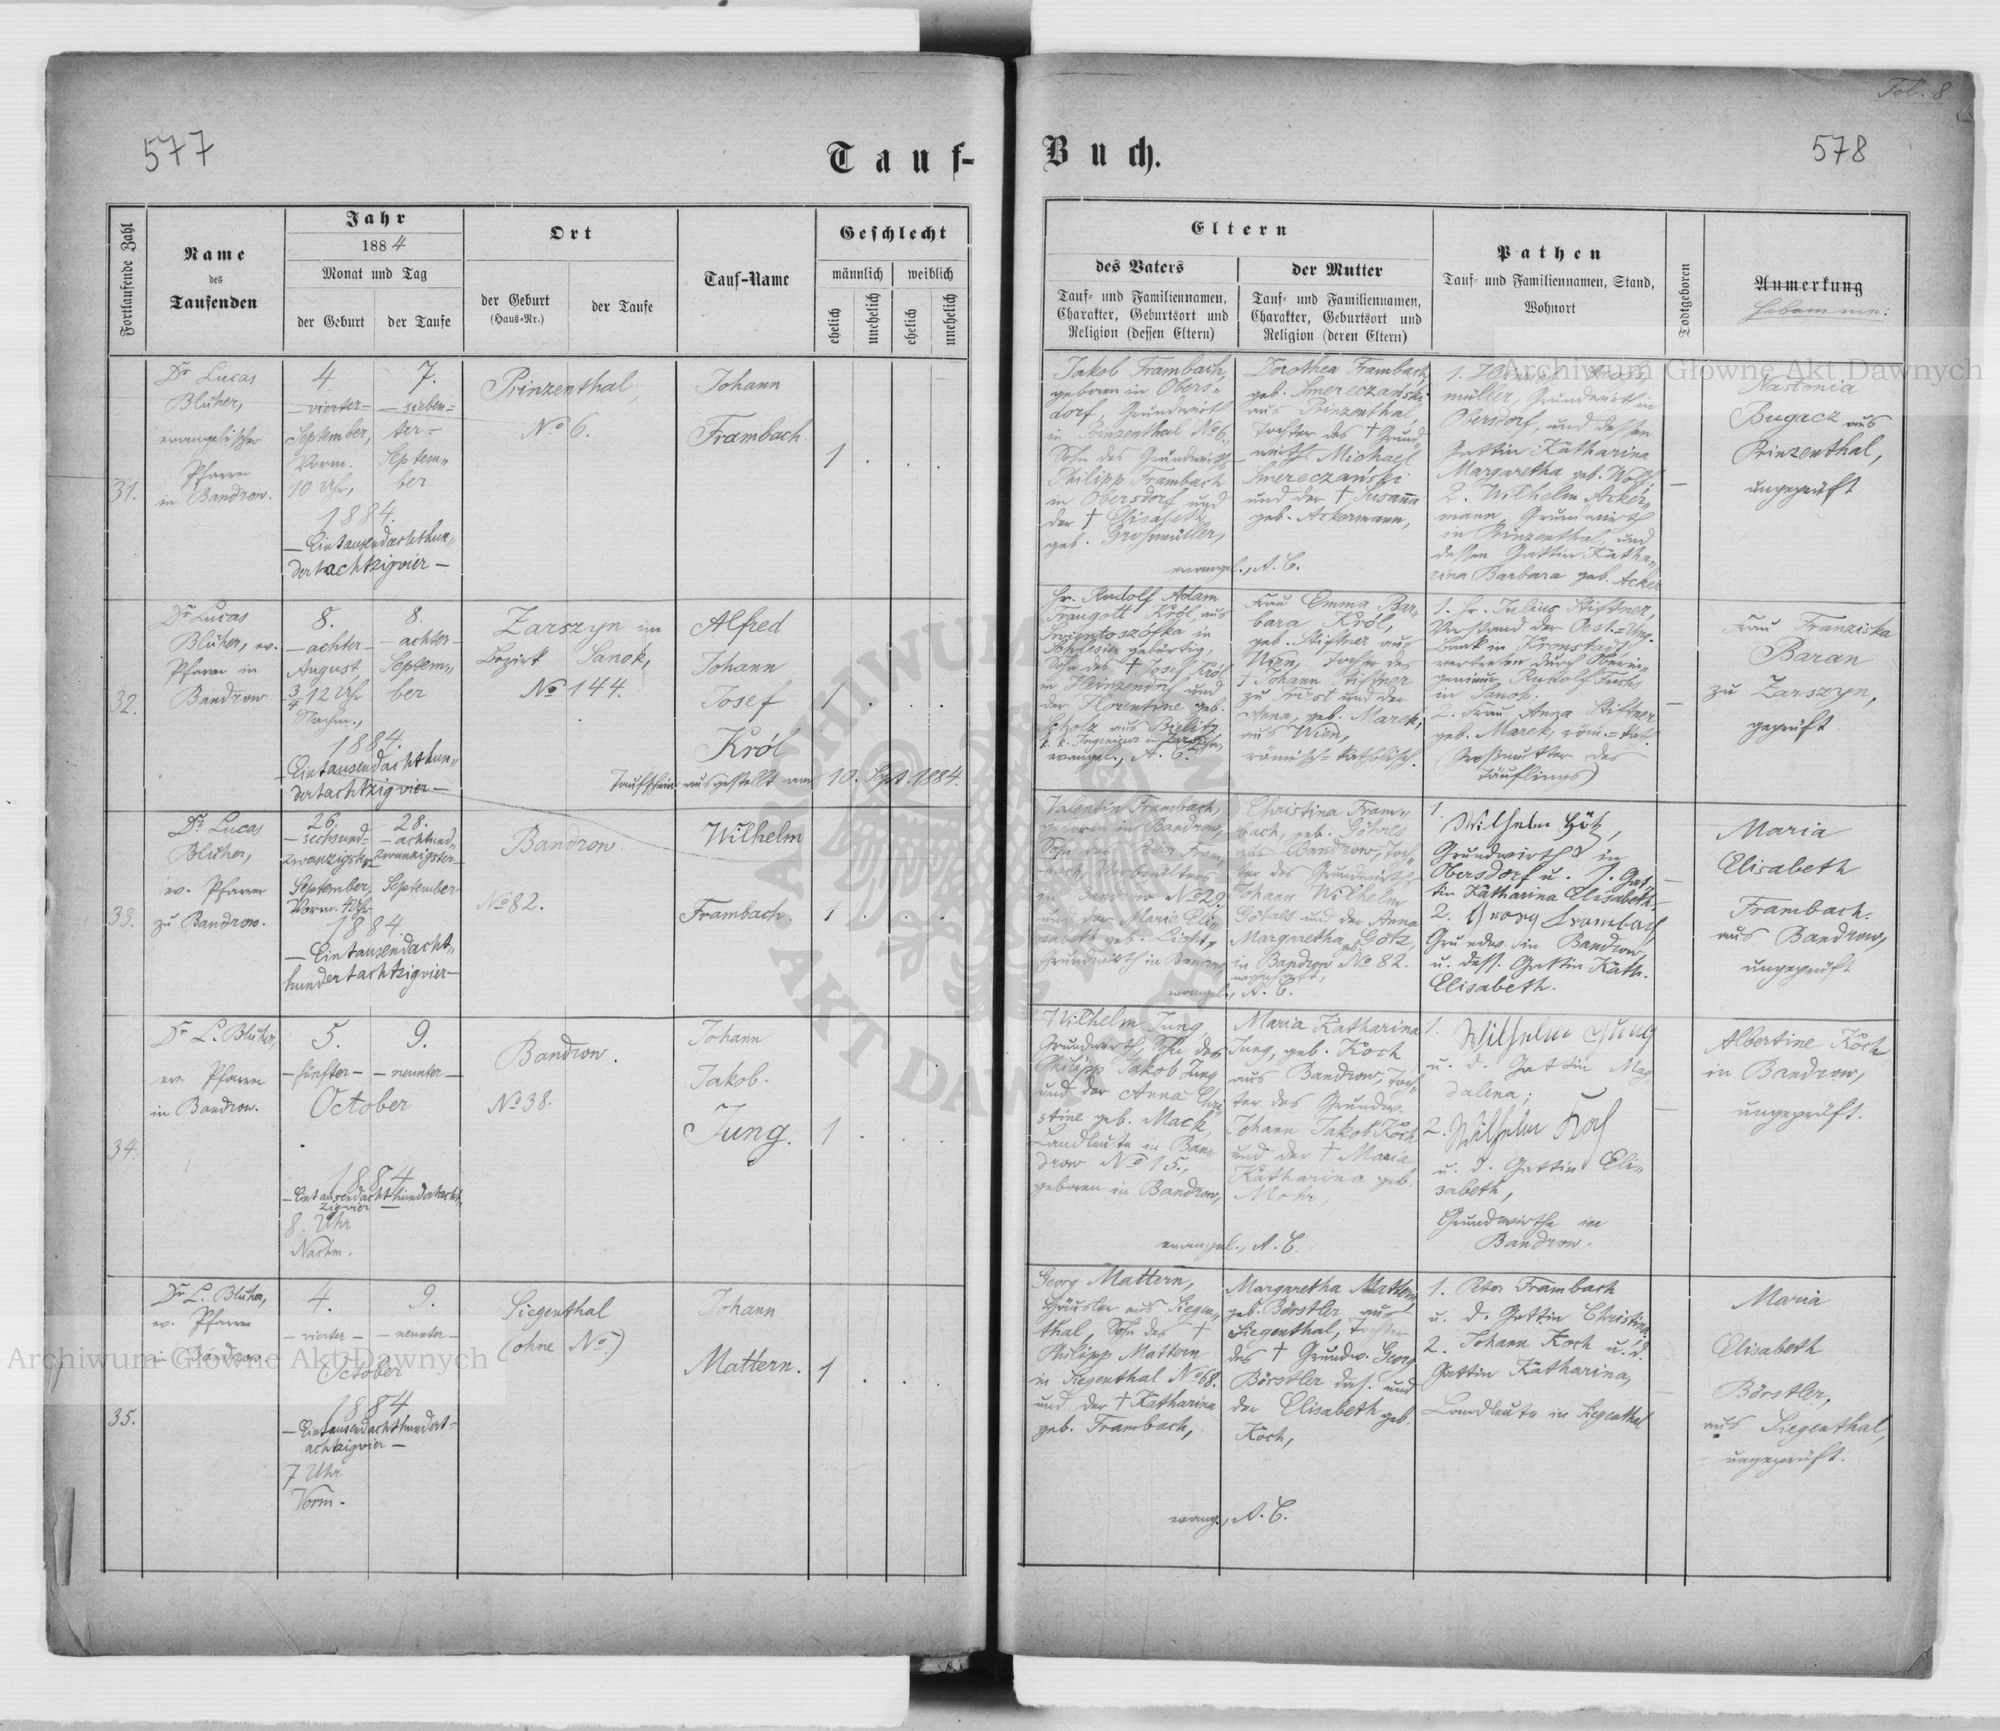 577
Tauf-
Fortlaufende Zahl
Name
des
Taufenden
Jahr
1884
Monat und Tag
der Geburt
der Taufe
Ort
der Geburt
(Haus-Nr.)
der Taufe
Tauf-Name
Geschlecht
männlich
weiblich
ehelich
unehelich
ehelich
unehelich
31.
Dr Lucas
Blüher,
evangelischer
Pfarrer
in Bandrow.
4.
— vierter —
September,
Vorm.
10 Uhr,
7.
— sieben=
ter —
Septem„
ber
1884.
— Eintausendachthun„
dertachtzigvier —
Prinzenthal,
No 6.
Johann
Frambach.
1 . . .
32.
Dr Lucas
Blüher, ev.
Pfarrer in
Bandrow
8.
— achter —
August,
3/4 12 Uhr
Nachm.,
8.
— achter —
Septem„
ber
1884.
— Eintausendachthun„
dertachtzigvier —
Zarszyn im
Bezirk Sanok,
No 144.
Alfred
Johann
Josef
Król
1 . . .
Taufschein ausgestellt am 10. Sept. 1884.
33.
Dr Lucas
Blüher,
ev. Pfarrer
zu Bandrow.
26.
— sechsund=
zwanzigster
September,
Vorm. 4 Uhr
28.
— achtund„
zwanzigster —
September
1884
— Eintausendacht„
hundertachtzigvier —
Bandrow.
No 82.
Wilhelm
Frambach.
1 . . .
34.
Dr L. Blüher,
ev. Pfarrer
in Bandrow.
5.
— fünfter —
9.
— neunter —
October
1884
— Eintausendachthundertacht„
zigvier —
8. Uhr
Nachm.
Bandrow.
No 38.
Johann
Jakob.
Jung.
1 . . .
35.
Dr L. Blüher,
ev. Pfarrer
in Bandrow.
4.
— vierter —
9.
— neunter —
October
1884
— Eintausendachthundert=
achtzigvier —
7 Uhr
Vorm.
Siegenthal
(ohne No.)
Johann
Mattern.
1 . . .
Fol. 8.
578
Buch.
Eltern
des Vaters
Tauf= und Familiennamen,
Charakter, Geburtsort und
Religion (dessen Eltern)
der Mutter
Tauf= und Familiennamen,
Charakter, Geburtsort und
Religion (deren Eltern)
Pathen
Tauf= und Familiennamen, Stand,
Wohnort
Todtgeboren
Anmerkung
Hebamme:
Jakob Frambach,
geboren in Obers=
dorf, Grundwirth
in Prinzenthal No 6,
Sohn des Grundwirths
Philipp Frambach
in Obersdorf und
der † Elisabeth
geb. Großmüller,
Dorothea Frambach,
geb. Smereczański
aus Prinzenthal,
Tochter des † Grund„
wirths Michael
Smereczański
und der † Susanna
geb. Ackermann,
evangel., A. C.
müller, Grundwirth in
Obersdorf, und dessen
Gattin Katharina
Margaretha geb. Wolf;
2. Wilhelm Acker„
mann, Grundwirth
in Prinzenthal, und
dessen Gattin Katha„
rina Barbara geb. Acker
—
Nastonia
Bugacz aus
Prinzenthal,
ungeprüft
Hr. Rudolf Adam
Traugott Król, aus
in
Schlesien gebürtig,
Sohn des † Josef Król
in Heinzendorf und
der Florentine geb.
Scholz aus Bielitz
k. k. Ingenieur in Zarszyn,
evangel., A. C.
Frau Emma Bar„
bara Król,
geb. Stiftner aus
Wien, Tochter des
† Johann Stiftner
zu Triest und der
Anna, geb. Marek,
aus Wien,
römisch=katholisch.
1. Hr. Julius Stiftner,
Vorstand der Oest.=Ung.
Bank in Kronstadt,
vertreten durch Oberin„
genieur Rudolf Fuchs
in Sanok.
2. Frau Anna Stiftner
geb. Marek, röm.=kat.
(Großmutter des
Täuflings)
—
Frau Franziska
Baran
zu Zarszyn,
geprüft
Valentin Frambach,
geboren in Bandrow,
in Bandrow No 29,
und der Marie Eli„
sabeth geb. Licht,
Grundwirth in Bandrow
Christina Fram„
bach, geb.
aus Bandrow, Toch„
ter des Grundwirths
Johann Wilhelm
und der Anna
Margaretha geb. Götz,
in Bandrow No 82.
wohnhaft,
evangel., A. C.
1.
Wilhelm Götz,
Grundwirth in
Obersdorf u. s. Gat„
tin Katharina Elisabeth.
2. Georg Frambach
Grundw. in Bandrow,
u. dess. Gattin Kath.
Elisabeth.
—
Maria
Elisabeth
Frambach.
aus Bandrow,
ungeprüft
Wilhelm Jung,
Grundwirth, Sohn des
Philipp Jakob Jung
und der Anna Chri
stine geb. Mack,
Landleute in Ban„
drow No 15,
geboren in Bandrow,
Maria Katharina
Jung, geb. Koch
aus Bandrow, Toch„
ter des Grundw.
Johann Jakob Koch
und der † Maria
Katharina geb.
Mohr,
evangel., A. C.
1. Wilhelm Jung
u. d. Gattin Mag
dalena;
2. Wilhelm Koch
u. d. Gattin Eli„
sabeth,
Grundwirthe in
Bandrow.
—
Albertine Koch
in Bandrow,
ungeprüft.
Georg Mattern,
Häusler aus Siegen„
thal, Sohn des †
Philipp Mattern
in Siegenthal No 68.
und der † Katharina
geb. Frambach,
Margaretha Mattern,
geb. Börstler aus
Siegenthal, Tochter
des † Grundw. Georg
Börstler das. und
der Elisabeth geb.
Koch,
evang., A. C.
1. Peter Frambach
u. d. Gattin Christina;
2. Johann Koch u. d.
Gattin Katharina,
Landleute in Siegenthal
—
Maria
Elisabeth
Börstler,
aus Siegenthal,
ungeprüft.
Archiwum Główne Akt Dawnych
Archiwum Główne Akt Dawnych
ARCHIWUM
AKT DAWNYCH